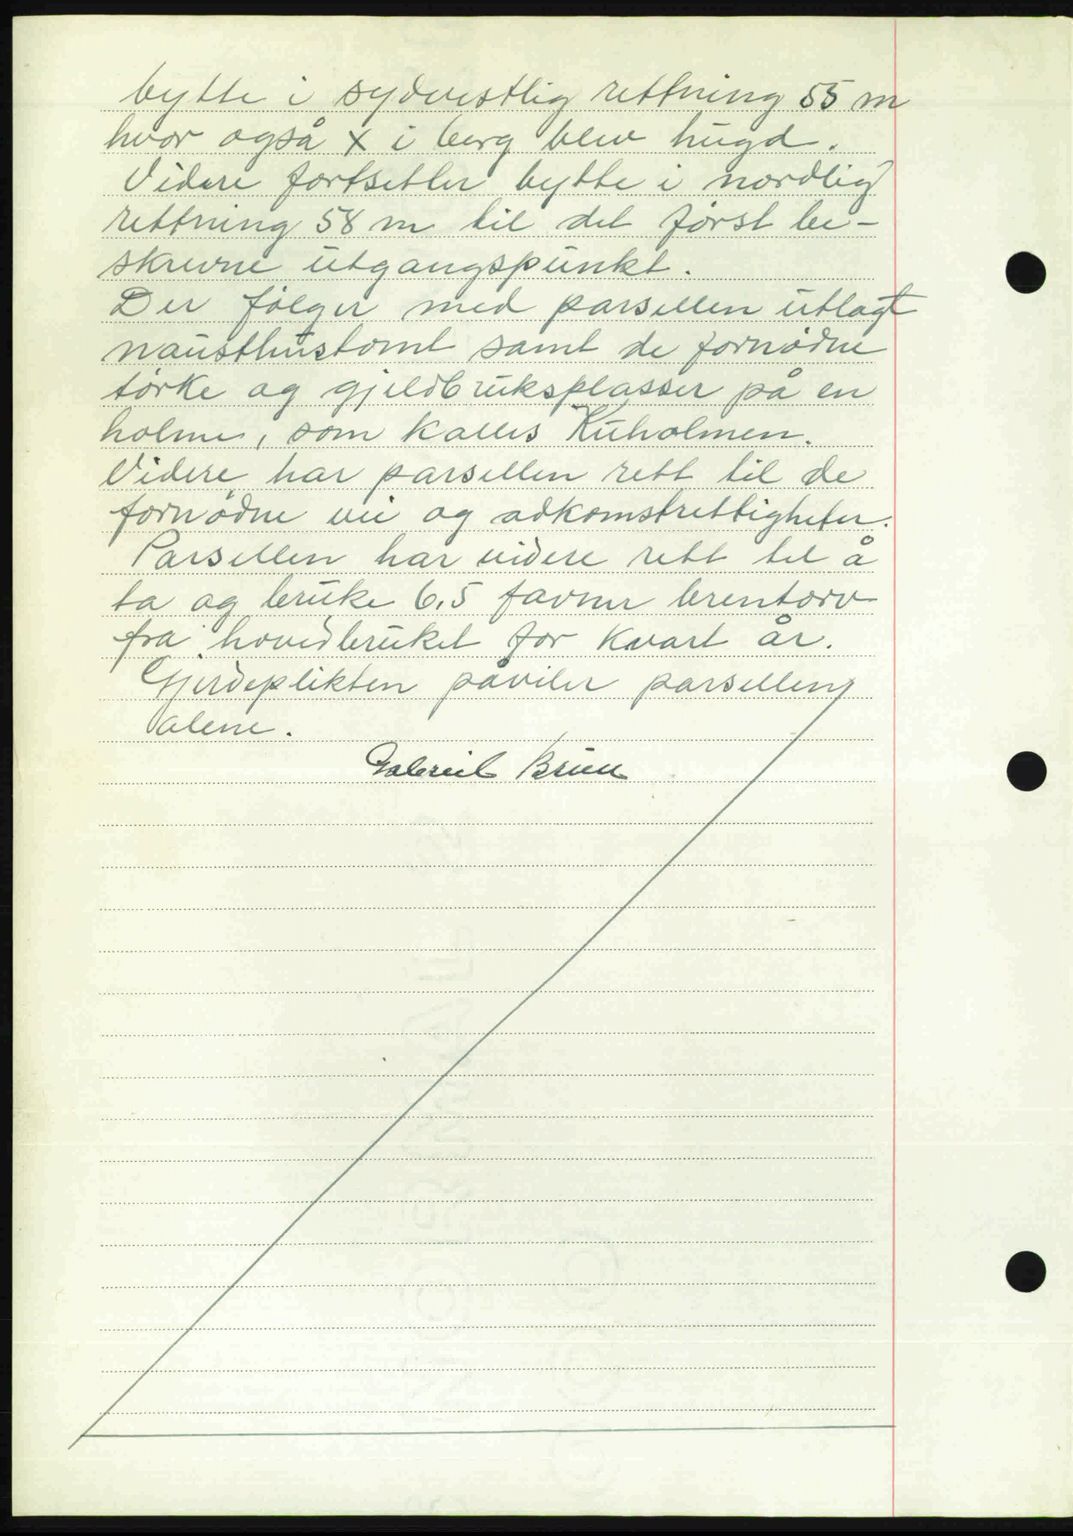 bytte i sydvestlig rettning 55 m
hvor også X i berg blev hugd.
Videre fortsetter bytte i nordlig
rettning 58 m til det først be-
skrevne utgangspunkt.
Der følger med parsellen utlagt
nausthustomt samt de fornødne
tørke og gjeldbruksplasser på en
holme, som kalles Kuholmen.
Videre har parsellen rett til de
fornødne vei og adkomstrettigheter.
Parsellen har videre rett til å
ta og bruke 6,5 favner brentorv
fra hovedbruket for kvart år.
Gjerdeplikten påviler parsellen
alene.
Gabriel Bruu